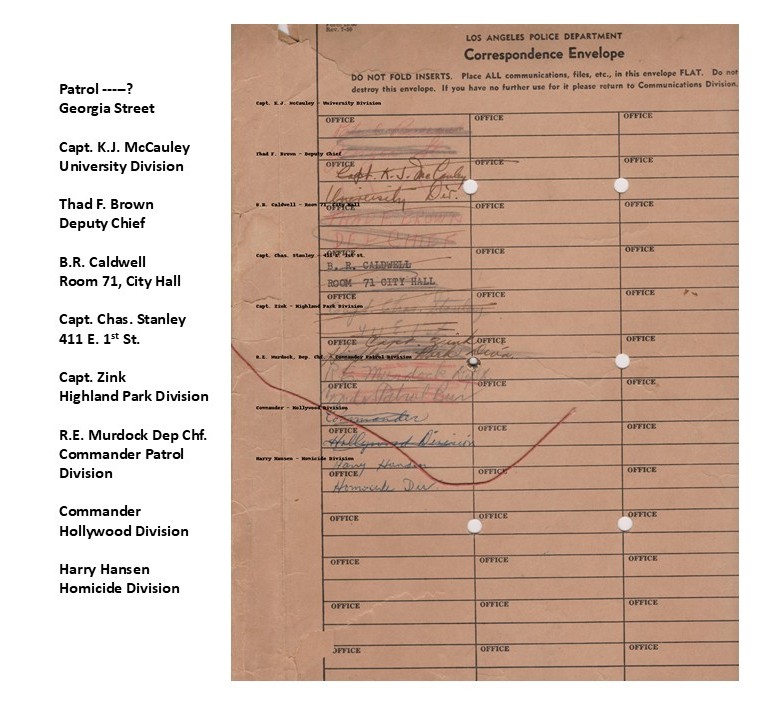 Patrol -----?
Georgia Street
Capt. K.J. McCauley
University Division
Thad F. Brown
Deputy Chief
B.R. Caldwell
Room 71, City Hall
Capt. Chas. Stanley
411 E. 1st St.
Capt. Zink
Highland Park Division
R.E. Murdock Dep Chf.
Commander Patrol
Division
Commander
Hollywood Division
Harry Hansen
Homicide Division
Rev. 7-50
LOS ANGELES POLICE DEPARTMENT
Correspondence Envelope
DO NOT FOLD INSERTS. Place ALL communications, files, etc., in this envelope FLAT. Do not
destroy this envelope. If you have no further use for it please return to Communications Division.
Capt. K.J. McCauley - University Division
OFFICE OFFICE OFFICE
Thad F. Brown - Deputy Chief
OFFICE OFFICE OFFICE
Capt. K. J. McCauley
University Div.
B.R. Caldwell - Room 71, City Hall
OFFICE OFFICE OFFICE
THAD F. BROWN
Capt. Chas. Stanley - 411 E. 1st St.
OFFICE OFFICE OFFICE
B. R. CALDWELL
ROOM 71 CITY HALL
OFFICE OFFICE OFFICE
Capt. Chas. Stanley
Capt. Zink - Highland Park Division
411 E. 1st
OFFICE OFFICE OFFICE
Capt. Zink
Highland Park Divn.
R.E. Murdock, Dep. Chf. - Commander Patrol Division
R.E. Murdock
OFFICE OFFICE OFFICE
Patrol Bur
Commander - Hollywood Division
Commander
OFFICE OFFICE OFFICE
Hollywood Division
Harry Hansen - Homicide Division
Harry Hansen
OFFICE OFFICE OFFICE
Homicide Div.
OFFICE OFFICE OFFICE
OFFICE OFFICE OFFICE
OFFICE OFFICE OFFICE
OFFICE OFFICE OFFICE